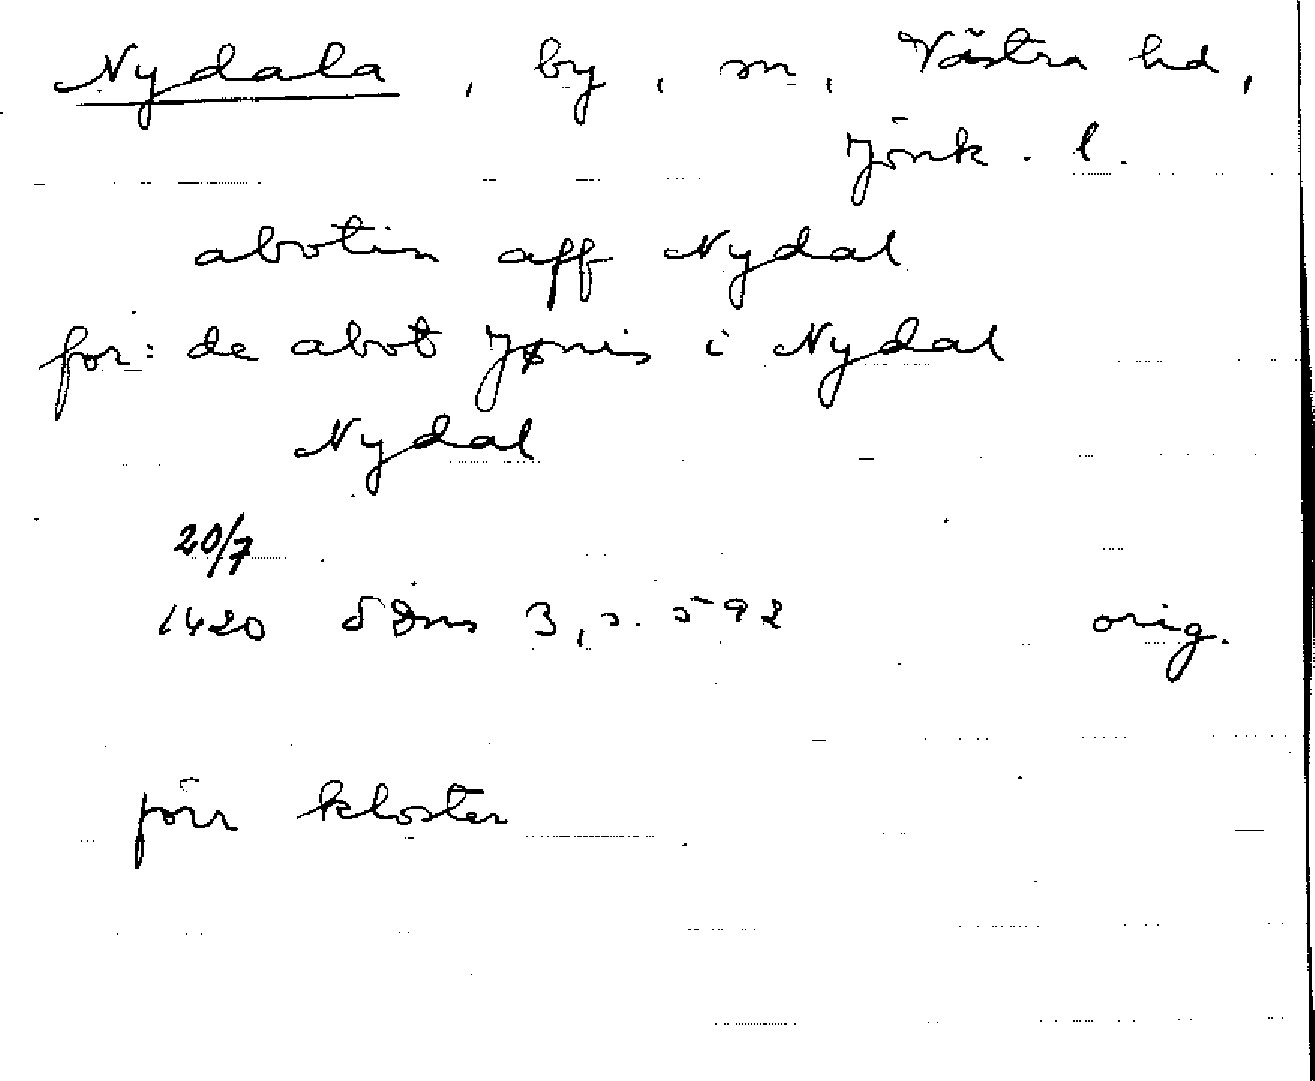 Nydala, by, sn, Västra hd,
Jönk. l.
abotin aff Nydal
for: de abot Jønis i Nydal
Nydal
20/7
1420 SDns 3, s. 592 orig.
förr kloster